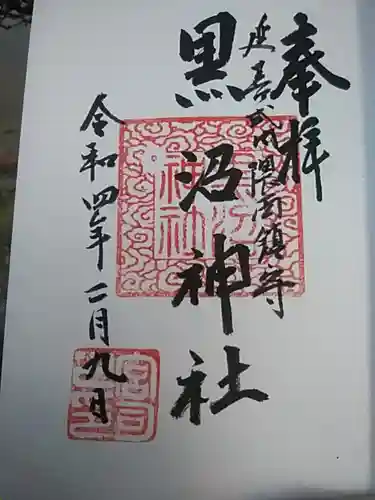 奉拝
延喜式内信夫郡鎮守
黒沼神社
令和四年二月九日